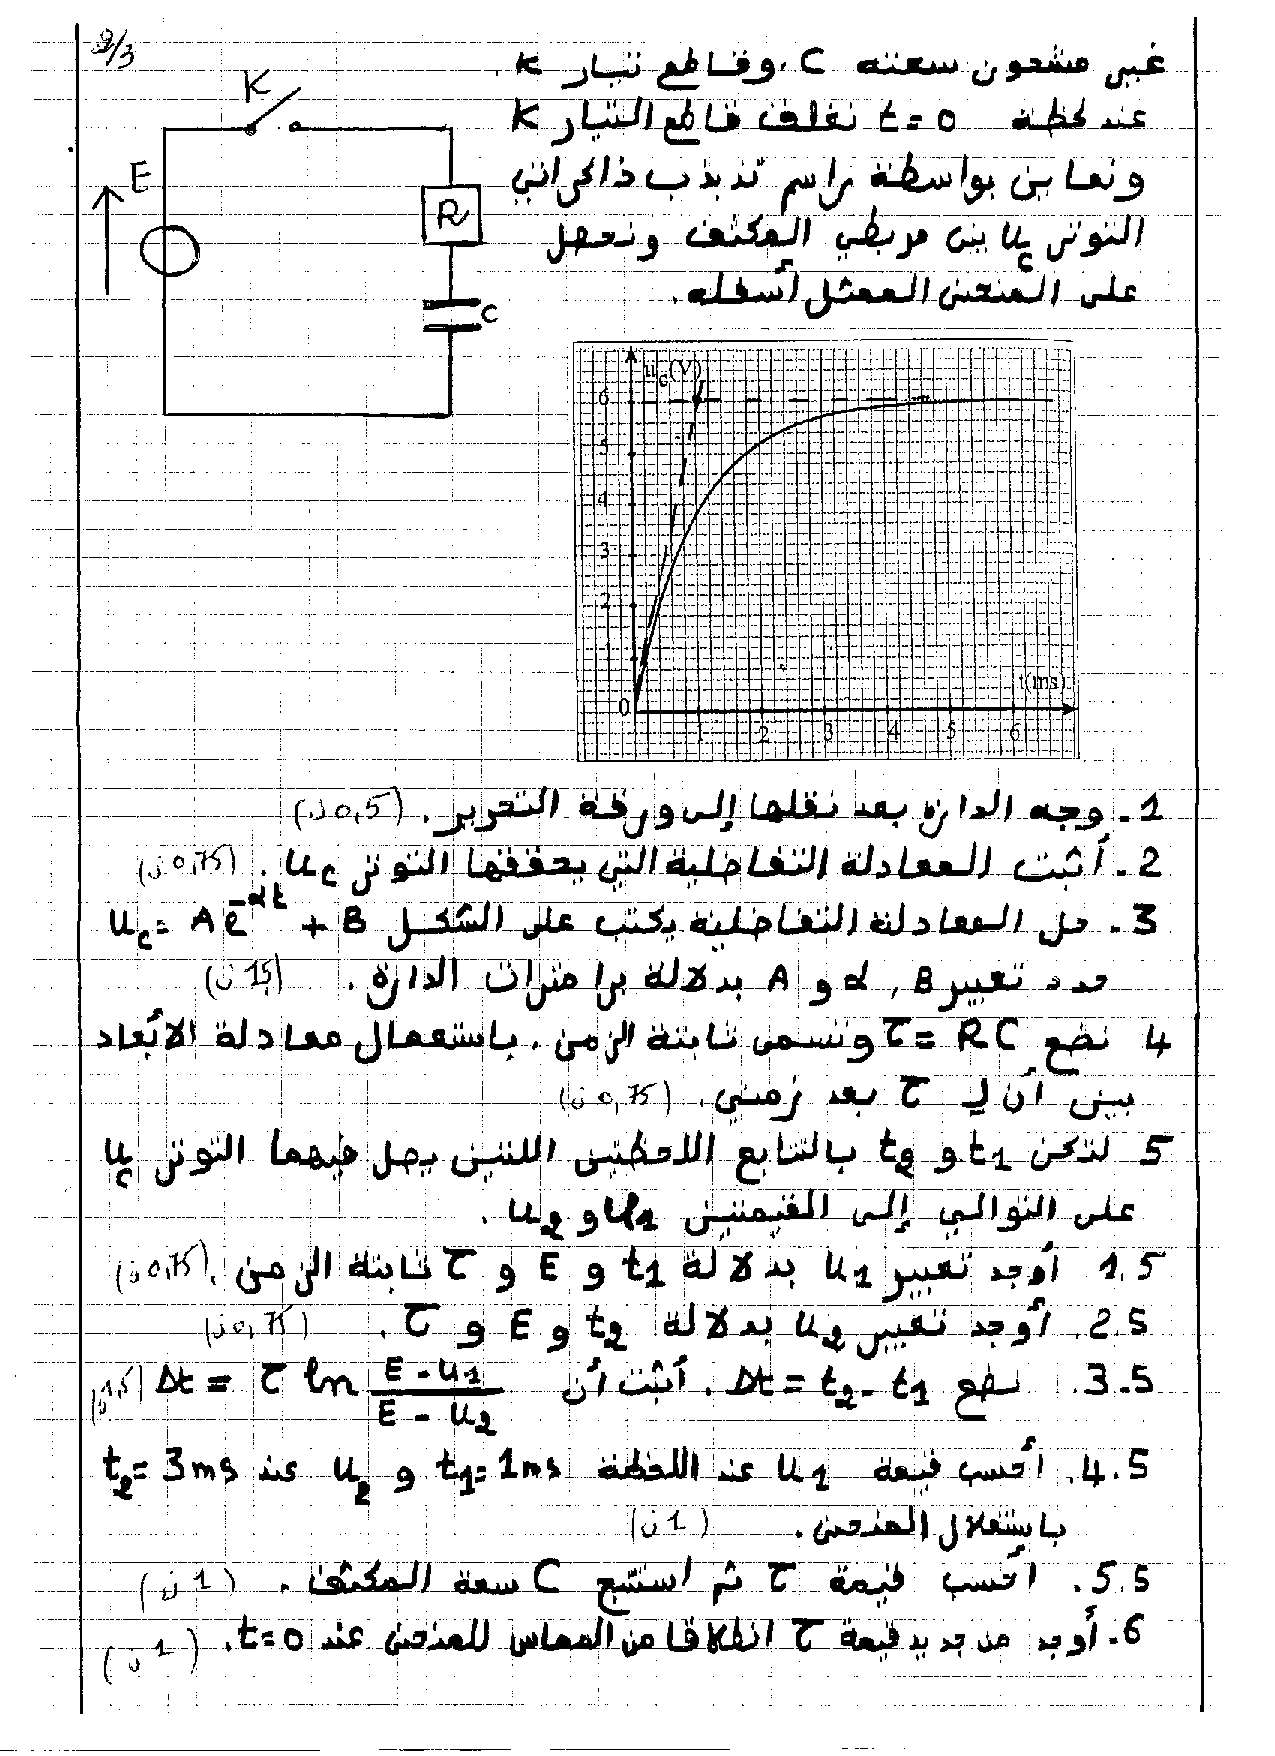 2/3
غير مشحون سعته C، وقاطع تيار K.
عند لحظة t=0 نغلق قاطع التيار K
ونعاين بواسطة راسم تذبذب ذاكراتي
التوتر uc بين مربطي المكثف ونحصل
على المنحنى الممثل أسفله.
K
E
R
C
uc(V)
6
5
4
3
2
0
1 2 3 4 5 6
t(ms)
1. وجه الدارة بعد نقلها إلى ورقة التحرير. (0,5ن)
2. أثبت المعادلة التفاضلية التي يحققها التوتر uc. (0,75ن)
3. حل المعادلة التفاضلية يكتب على الشكل uc = A e^-αt + B
حدد تعبير B, α و A بدلالة برامترات الدارة. (1,5ن)
4 نضع τ = RC وتسمى ثابتة الزمن. باستعمال معادلة الأبعاد
بين أن ل τ بعد زمني. (0,75ن)
5 لتكن t1 و t2 بالتتابع اللحظتين اللتين يصل فيهما التوتر uc
على التوالي إلى القيمتين u1 و u2.
1.5 أوجد تعبير u1 بدلالة t1 و E و τ ثابتة الزمن. (0,75ن)
2.5. أوجد تعبير u2 بدلالة t2 و E و τ. (0,75ن)
3.5. نضع Δt = t2 - t1. أثبت أن Δt = τ ln (E - u1)/(E - u2) (1,5ن)
4.5. أحسب قيمة u1 عند اللحظة t1=1ms و u2 عند t2=3ms
باستغلال المنحنى. (1ن)
5.5. أحسب قيمة τ ثم استنتج C سعة المكثف. (1ن)
6. أوجد من جديد قيمة τ انطلاقا من المماس للمنحنى عند t=0. (1ن)